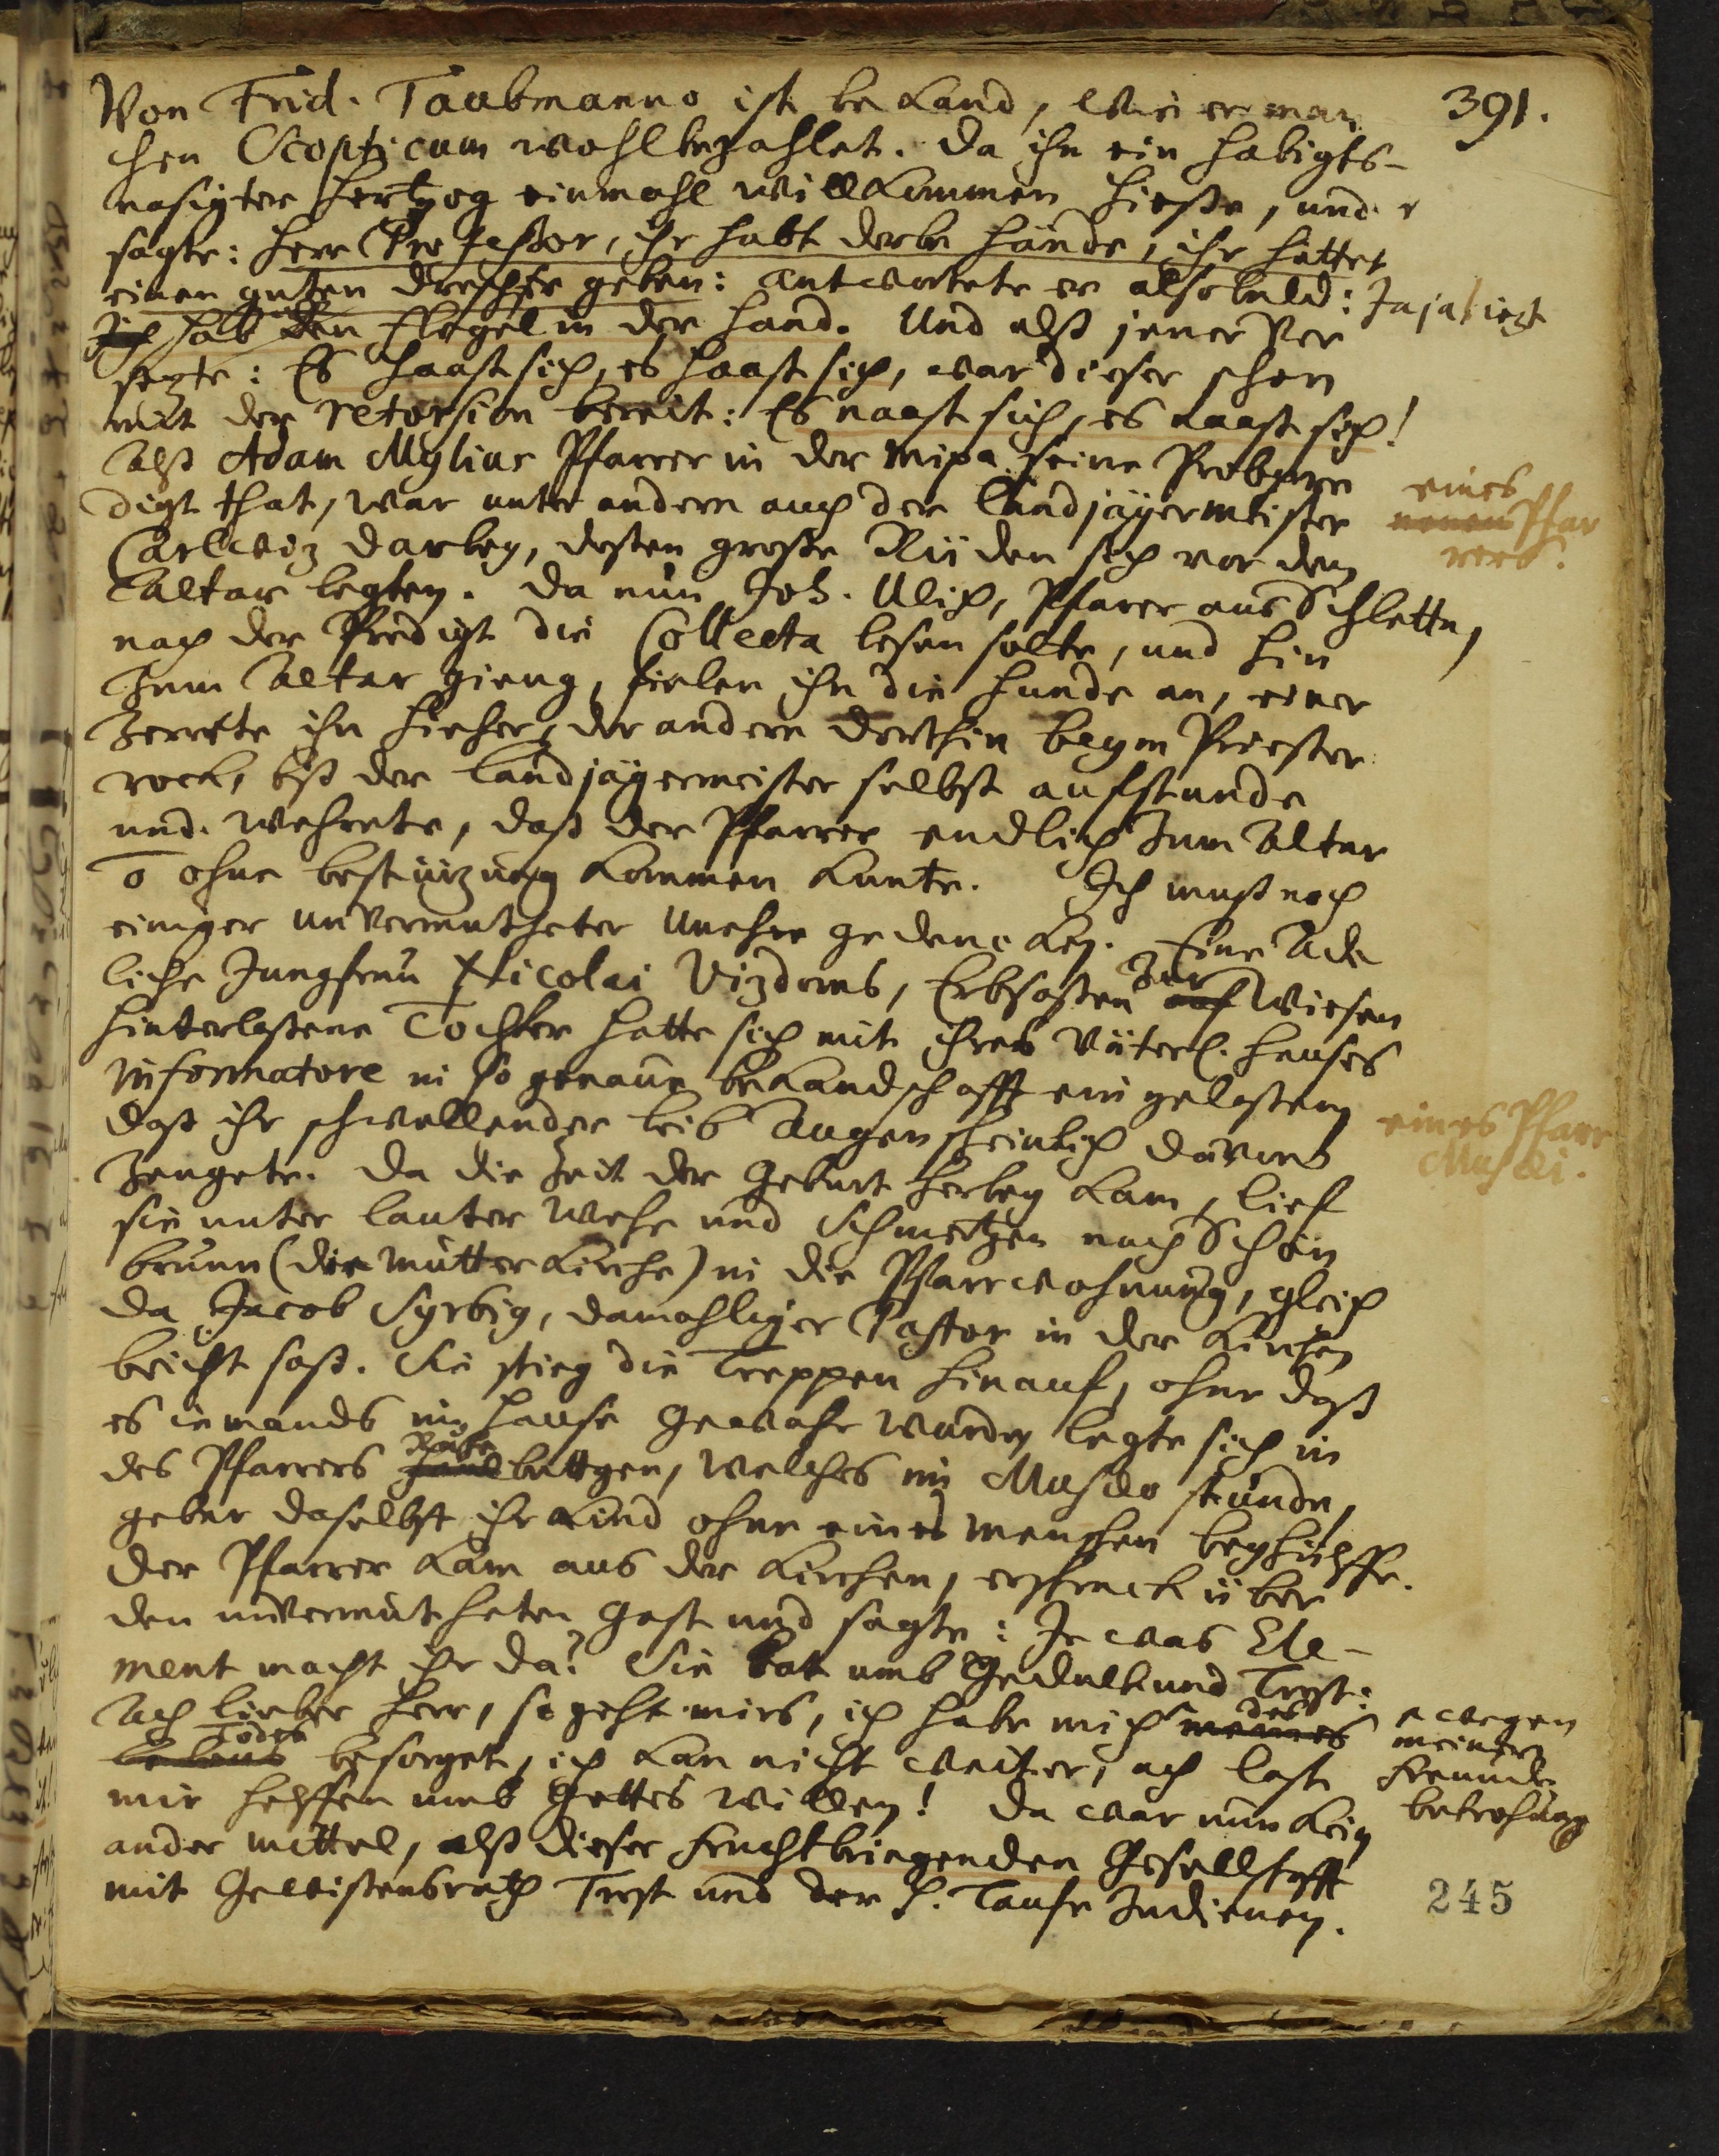 391.
Von Frid. Taubmanno ist bekand, wie er man
chen Scopticum wohl bezahlet. Da ihn ein habigts-
nasigter Hertzog einmahl willkommen hieße, und
sagte: Herr Professor, ihr habt derbe Hände, ihr hättet
einen guten drescher geben: antwortete er alsobald: Ja ja! iezt
hab den Flegel in der Hand. Und alß jener ver
sezte: Es haast sich, es haast sich, war dieser schon
mit der retorsion bereit: Es naast sich, es naast sich!
Alß Adam Mylius Pfarrer in der Mißa seine Probpre
digt that, war unter andern auch der Landjägermeister
Carlwiz darbey, deßen große Rüden sich vor den
Altar legten. Da nun Joh. Ulich, Pfarrer aus Schletta,
nach der Predigt die Collecta lesen solte, und hin
zum Altar gieng, fielen ihn die Hunde an, einer
zerrete ihn hieher, der andere dorthin beym Priester
rock, biß der Landjägermeister selbst aufstunde
und wehrete, daß der Pfarrer endlich zum Altar
ohne bestürzung kommen kunte. Ich muß noch
einiger unvermutheter Unehre gedencken. Eine Ade
liche Jungfrau Nicolai Vizdoms, Erbsaßen zur auf Wiesen
hinterlaßene Tochter hatte sich mit ihres väterl. Hauses
informatore in so genaue bekandschafft eingelaßen
daß ihr schwellender leib augenscheinlich davon
zeugete. Da die Zeit der Geburt herbey kam, lief
sie unter lauter Wehe und Schmertzen nach Schön
brunn (die Mutterkirche) in die Pfarrwohnung, gleich
da Jacob Syrbig, damahliger Pastor in der Kirchen
beicht saß. Sie stieg die Treppen hinauf, ohne daß
es iemands im Hause gewahr wurde, legte sich in
des Pfarrers Ruhe bettgen, welches im Musæo stunde,
gebar daselbst ihr Kind ohne eines Menschen beyhülffe.
Der Pfarrer kam aus der Kirchen, erschrack über
den unvermutheten Gast und sagte: Je was Ele-
ment macht ihr da? Sie bat umb Gedult und Trost:
Ach lieber Herr, so geht mirs, ich habe mich des meines
Todes lebens besorget, ich kan nicht weiter, ach last
mir helffen umb Gottes willen! Da war nun kein
ander mittel, alß dieser fruchtbringenden Gesellschafft
mit Gewißensrath Trost und der H. Taufe zudienen.
eines
neuen Pfar
rers.
eines Pfarr
Musæi.
wegen
meiner
Freunde
betrohung
245